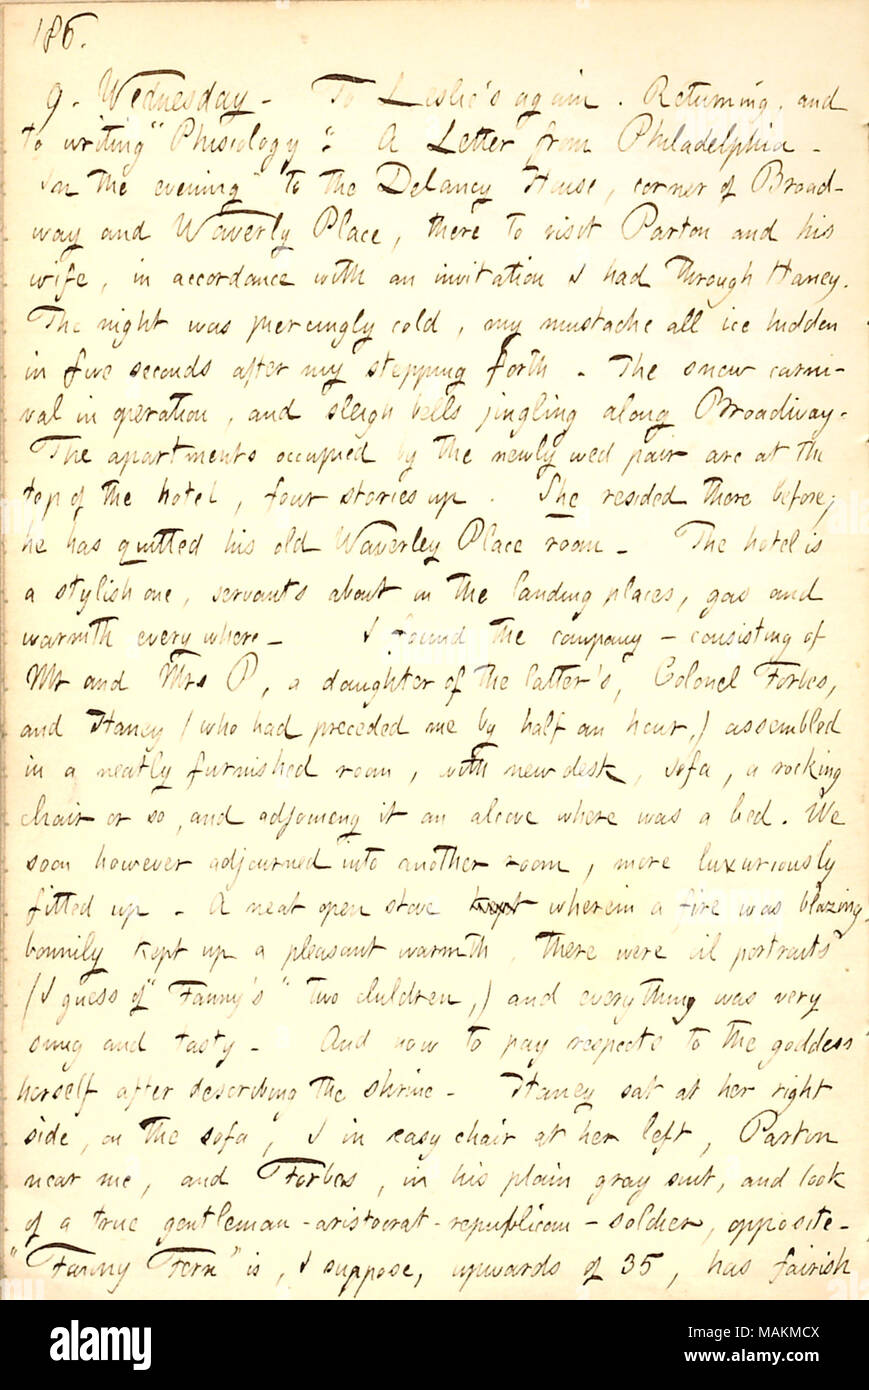 186.
9. Wednesday. To Leslie's again. Returning, and
to writing "Phisiology". A Letter from Philadelphia.
In the evening to the Delancy House, corner of Broad-
way and Waverly Place, there to visit Parton and his
wife, in accordance with an invitation I had through Haney.
The night was piercingly cold, my mustache all ice hidden
in five seconds after my stepping forth. The snow carni-
val in operation, and sleigh bells jingling along Broadway.
The apartments occupied by the newly wed pair are at the
top of the hotel, four stories up. She resided there before;
he has quitted his old Waverley Place room. The hotel is
a stylish one, servants about in the landing places, gas and
warmth everywhere. I found the company - consisting of
Mr and Mrs P, a daughter of the latter's, Colonel Forbes,
and Haney (who had preceded me by half an hour,) assembled
in a neatly furnished room, with new desk, sofa, a rocking
chair or so, and adjoineng it an alcove where was a bed. We
soon however adjourned into another room, more luxuriously
fitted up. A neat open stove kept wherein a fire was blazing
bonnily kept up a pleasant warmth, there were oil portraits
(I guess of "Fanny's" two children,) and everything was very
snug and tasty. And now to pay respects to the goddess
herself after describing the shrine. Haney sat at her right
side, on the sofa, I in easy chair at her left, Parton
near me, and Forbes, in his plain gray suit, and look
of a true gentleman-aristocrat-republican-soldier, opposite.
"Fanny Fern" is, I suppose, upwards of 35, has fairish
alamy
Image ID: MAKMCX
www.alamy.com